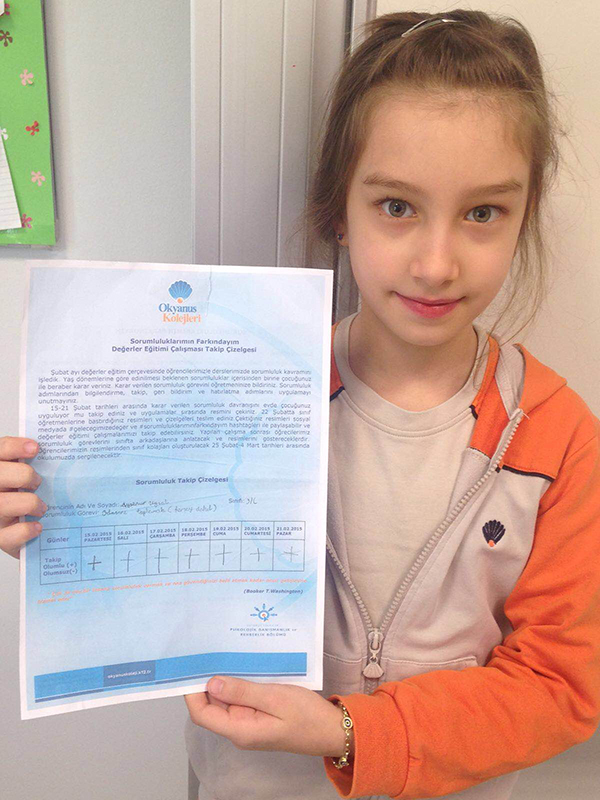 Okyanus
Kolejleri
Sorumluluklarımın Farkındayım
Değerler Eğitimi Çalışması Takip Çizelgesi
Şubat ayı değerler eğitim çerçevesinde öğrencilerimizle derslerimizde sorumluluk kavramını
işledik. Yaş dönemlerine göre edinilmesi beklenen sorumluluklar içerisinden birine çocuğunuz
ile beraber karar veriniz. Karar verilen sorumluluk görevini öğretmenimize bildiriniz. Sorumluluk
adımlarından bilgilendirme, takip, geri bildirim ve hatırlatma adımlarını uygulamayı
unutmayınız.
15-21 Şubat tarihleri arasında karar verilen sorumluluk davranışını evde çocuğunuz
uyguluyor mu takip ediniz ve uygulamalar sırasında resmini çekiniz. 22 Şubatta sınıf
öğretmenlerine bastırdığınız resimleri ve çizelgeleri teslim ediniz.Çektiğiniz resimleri sosyal
medyada #gelecegimizsedegerr ve #sorumluluklarımınfarkındayım hashtagleri ile paylaşabilir ve
değerler eğitim çalışmalarımızı takip edebilirsiniz. Yapılan çalışma sonrası öğrencilerimiz
sorumluluk görevlerini sınıfta arkadaşlarına anlatacak ve resimlerini göstereceklerdir.
Öğrencilerimizin resimlerinden sınıf kolajları oluşturulacak 25 Şubat-4 Mart tarihleri arasında
okulumuzda sergilenecektir.
Sorumluluk Takip Çizelgesi
Öğrencinin Adı Ve Soyadı: Sınıf: 3/L
Sorumluluk Görevi:
Günler 15.02.2015 PAZARTESİ 16.02.2015 SALI 17.02.2015 ÇARŞAMBA 18.02.2015 PERŞEMBE 19.02.2015 CUMA 20.02.2015 CUMARTESİ 21.02.2015 PAZAR
Takip
Olumlu (+) + + + + + + +
Olumsuz(-)
(Booker T.Washington)
PSİKOLOJİK DANIŞMANLIK ve
REHBERLİK BÖLÜMÜ
okyanuskoleji.k12.tr